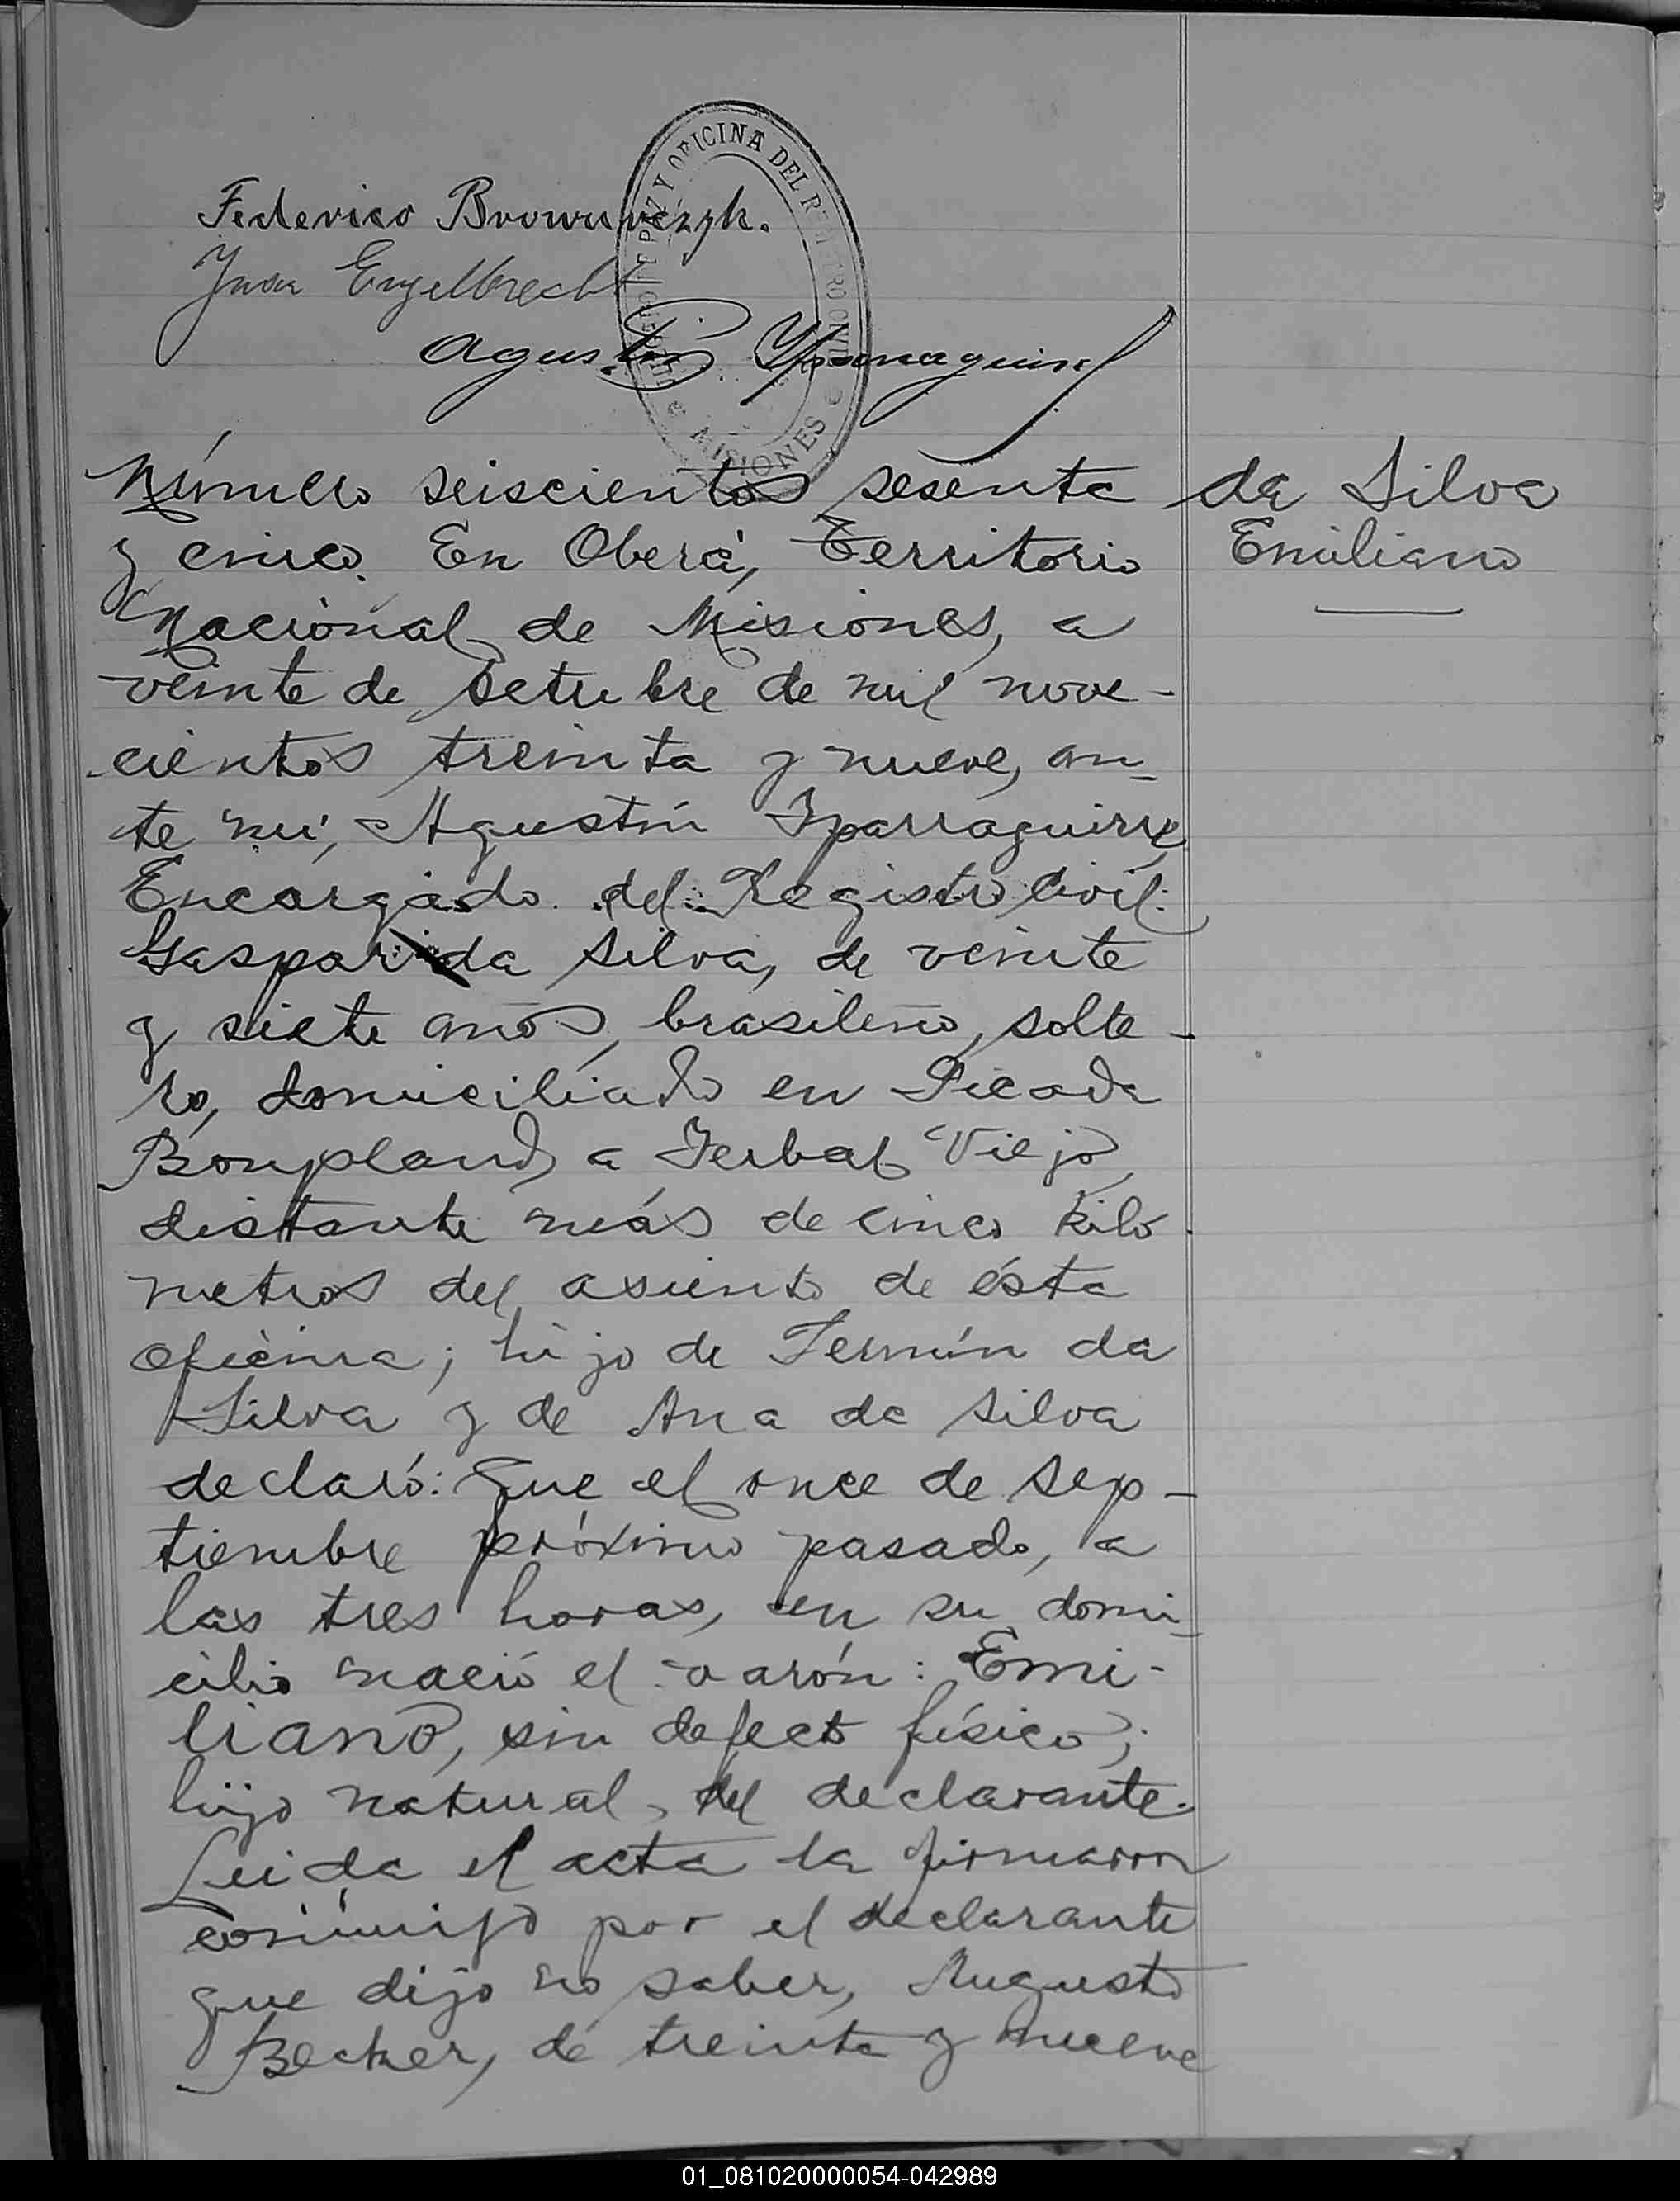 Federico Brownwczyk.
Juan Engelbrecht
Agustín Yparraguirre
JUZGADO DE PAZ Y OFICINA DEL REGISTRO CIVIL
MISIONES
Número seiscientos sesenta
y cinco. En Oberá, Territorio
Nacional de Misiones, a
veinte de setubre de mil nove-
cientos treinta y nueve, an-
te mí, Agustín Yparraguirre,
Encargado del Registro Civil:
Gaspar da Silva, de veinte
y siete años, brasileño, solte-
ro, domiciliado en Picada
Bonpland, a Yerbal Viejo,
distante más de cinco kiló
metros del asiento de ésta
oficina; hijo de Fermín da
Silva y de Ana da Silva
declaró: Que el once de sep-
tiembre próximo pasado, a
las tres horas, en su domi-
cilio nació el varón: Emi-
liano, sin defecto físico;
hijo natural del declarante.
Leida el acta la firmaron
conmigo por el declarante
que dijo no saber, Augusto
Becker, de treinta y nueve
da Silva
Emiliano
01_081020000054-042989